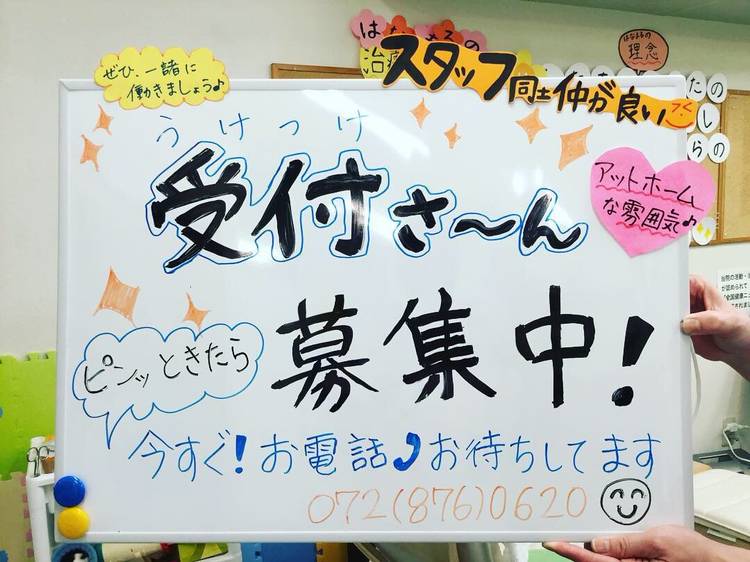 ぜひ、一緒に
働きましょう♪
はなまるの
治療
スタッフ同士仲が良い
はなまるの
理念
たの
しの
らの
アットホーム
な雰囲気♪
うけつけ
受付さ〜ん
募集中!
ピンッときたら
今すぐ!お電話お待ちしてます
072(876)0620